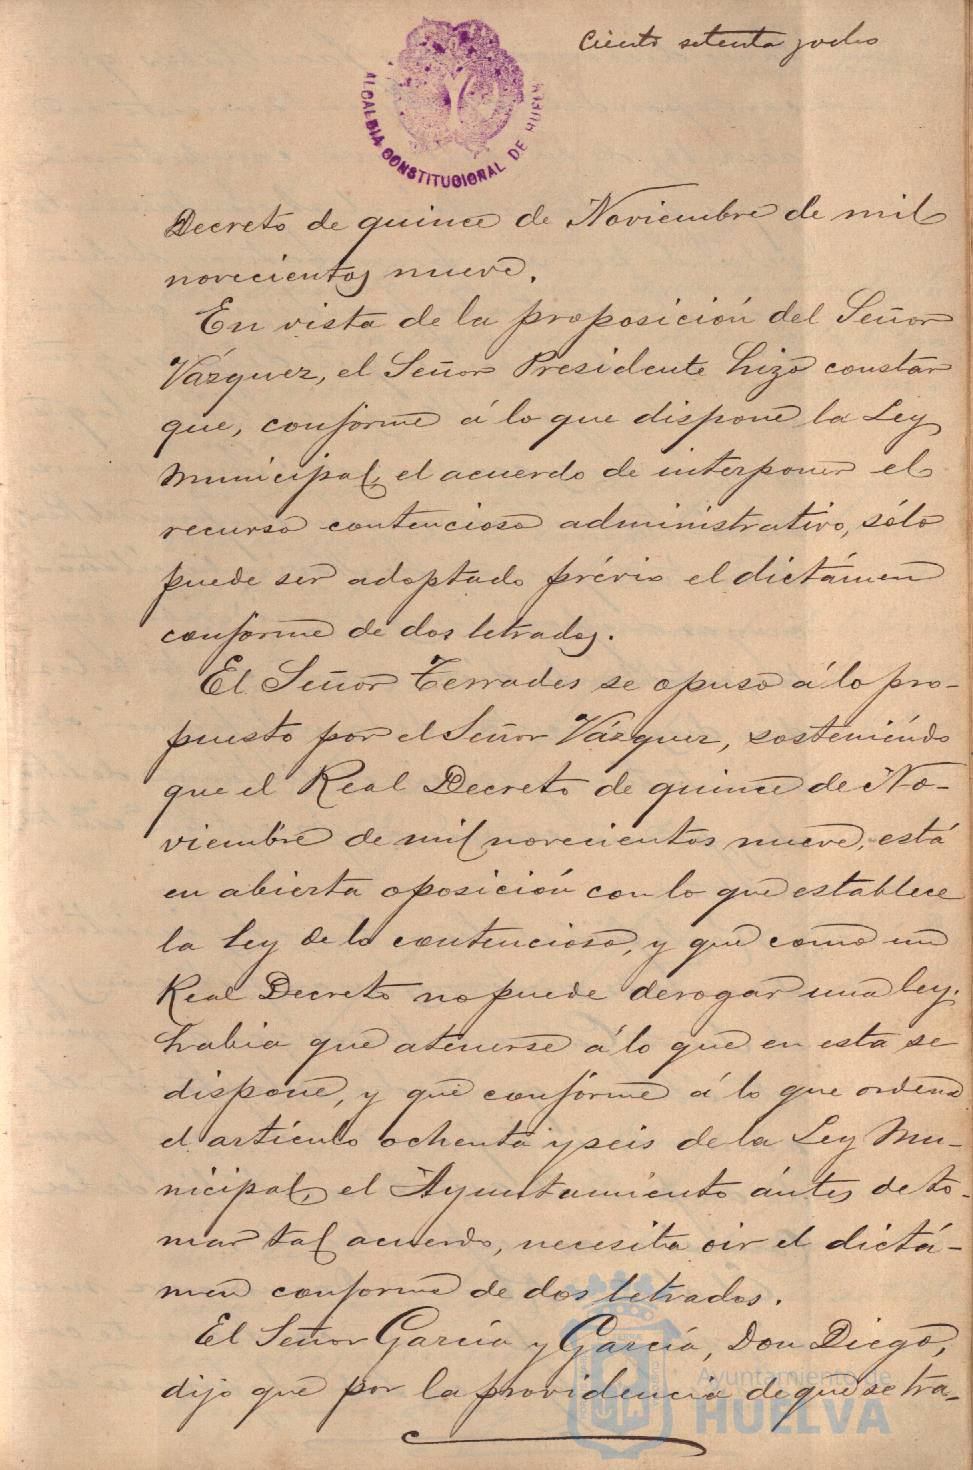 Ciento setenta y ocho
ALCALDIA CONSTITUCIONAL DE HUELVA
Decreto de quince de Noviembre de mil
novecientos nueve.
En vista de la proposición del Señor
Vázquez, el Señor Presidente hizo constar
que, conforme á lo que dispone la Ley
Municipal, el acuerdo de interponer el
recurso contencioso administrativo, sólo
puede ser adoptado prévio el dictámen
conforme de dos letrados.
El Señor Terrades se opuso á lo pro-
puesto por el Señor Vázquez, sosteniéndo
que el Real Decreto de quince de No-
viembre de mil novecientos nueve, está
en abierta oposición con lo que establece
la Ley de lo contencioso, y que como un
Real Decreto no puede derogar una ley,
habia que atenerse á lo que en esta se
dispone, y que conforme á lo que ordena
el artículo ochenta y seis de la Ley Mu-
nicipal, el Ayuntamiento ántes de to-
mar tal acuerdo, necesita oir el dictá-
men conforme de dos letrados.
El Señor García y García, Don Diego,
dijo que por la providencia de que se tra-
Ayuntamiento de
HUELVA